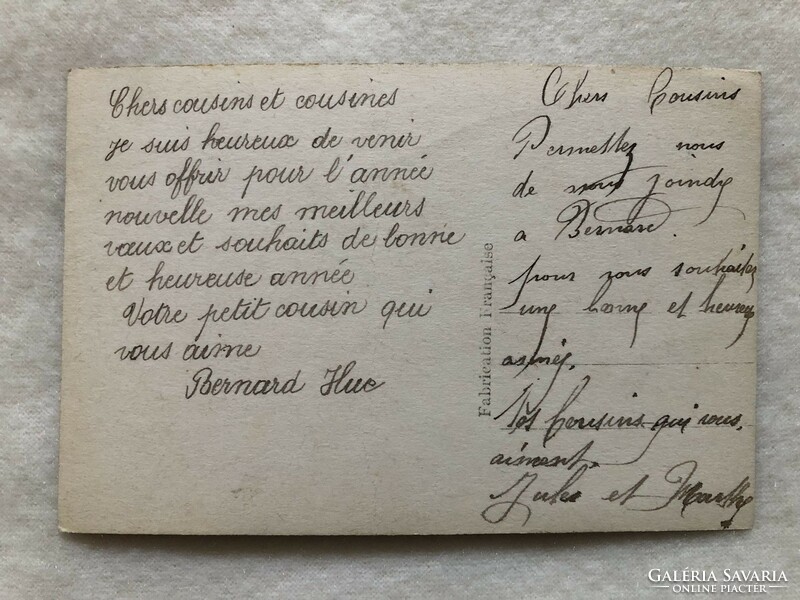 Chers cousins et cousines
je suis heureux de venir
vous offrir pour l'année
nouvelle mes meilleurs
vœux et souhaits de bonne
et heureuse année
Votre petit cousin qui
vous aime
Bernard Huc
Fabrication Française
Chers Cousins
Permettez nous
de joindre
a Bernard.
pour vous souhaiter
une bonne et heureuse
année.
Vos Cousins qui vous
aiment.
Jules et Marthe
GALÉRIA SAVARIA
ONLINE PIACTÉR